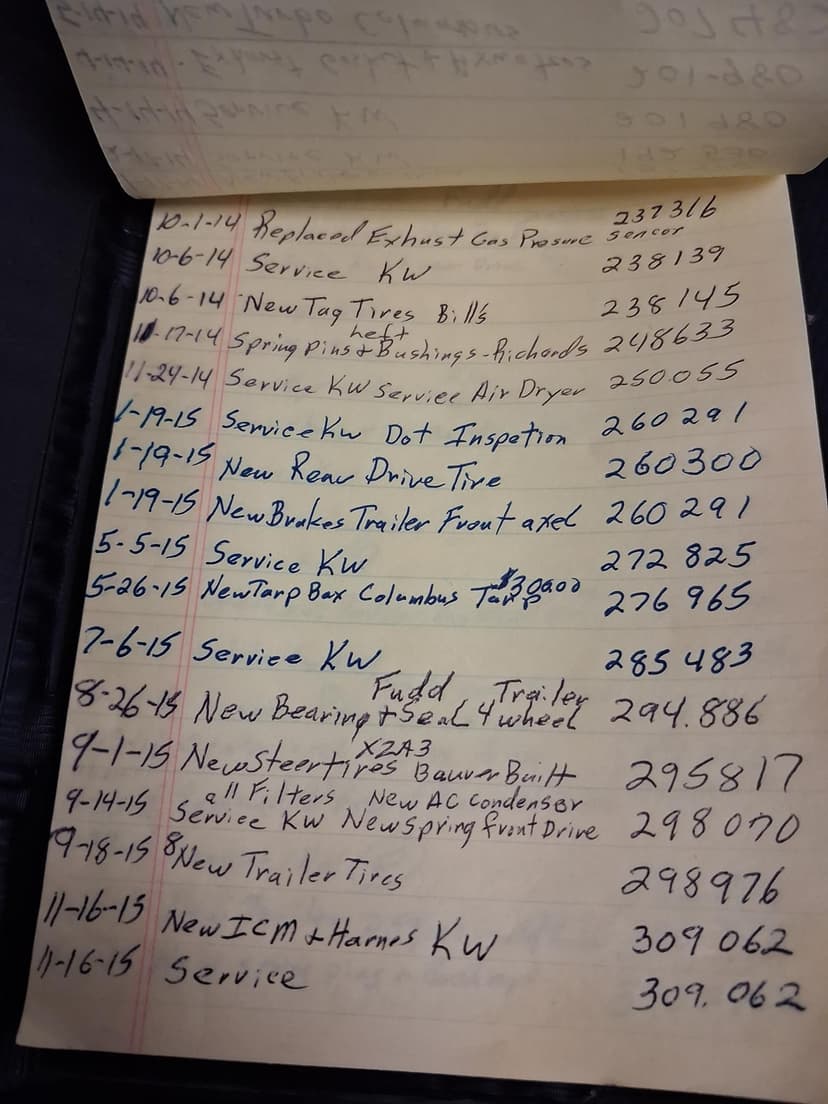 10-1-14 Replaced Exhust Gas Presure Sencor 237316
10-6-14 Service KW 238139
10-6-14 New Tag Tires Bills 238145
left
11-17-14 Spring Pins + Bushings - Richards 248633
11-24-14 Service KW Serviee Air Dryer 250.055
1-19-15 Service Kw Dot Inspetion 260291
1-19-15 New Rear Drive Tire 260300
1-19-15 New Brakes Trailer Front axel 260291
5-5-15 Service KW 272825
5-26-15 New Tarp Bax Columbus Tarp 276965
7-6-15 Service KW 285483
Fudd Trailer
8-26-15 New Bearing + Seal 4 wheel 294.886
XZA3
9-1-15 New Steertires Bauver Built 295817
all Filters New AC Condenser
9-14-15 Service KW New Spring front Drive 298070
9-18-15 8 New Trailer Tires 298976
11-16-15 New ICM + Harnes KW 309062
11-16-15 Service 309.062